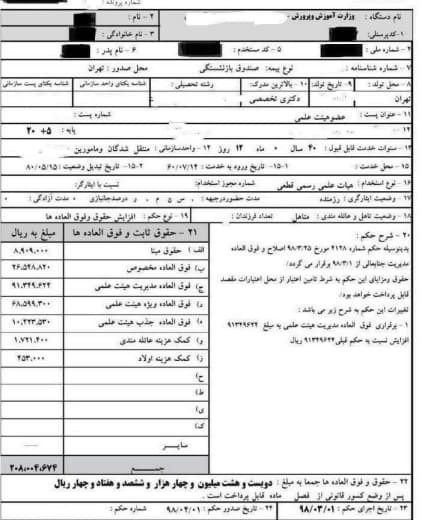 شماره پرونده :
نام دستگاه : وزارت آموزش و پرورش - ۲ - نام :
۱-کدپرسنلی: ۳ - نام خانوادگی :
۴ - شماره ملی : ۵ - کد مستخدم : ۶ - نام پدر :
۷ - شماره شناسنامه : نوع بیمه: صندوق بازنشستگی محل صدور : تهران
۸ - محل تولد : ۹- تاریخ تولد: ۱۰- بالاترین مدرک: رشته تحصیلی : شناسه یکتای واحد سازمانی شناسه یکتای پست سازمانی
تهران دکتری تخصصی
۱۱- عنوان پست : عضو هیئت علمی شماره پست:
۱۲ پایه : ۵+ ۲۰
۱۳ - سنوات خدمت قابل قبول : ۴۰ سال ۰ ماه ۱۲ روز ۱۴ - واحدسازمانی: منتقل شدگان ومامورین
۱۵ - محل خدمت : ۱-۱۵ تاریخ ورود به خدمت : ۶۰/۰۷/۱۴ ۲-۱۵ تاریخ تبدیل وضعیت : ۸۰/۰۵/۱۵
۱۶ - نوع استخدام : هیات علمی رسمی قطعی شماره مجوز استخدام: نسبت با ایثارگر:
۱۷ - وضعیت ایثارگری : رزمنده مدت حضوردرجبهه : ۰ س ۰ م ۰ ر درصدجانبازی مدت آزادگی :
۱۸ - وضعیت تاهل و عائله مندی : متاهل تعداد فرزندان : ۱۹ - نوع حکم : افزایش حقوق وفوق العاده ها
۲۰ - شرح حکم :
بدینوسیله حکم شماره ۴۱۲۸ مورخ ۹۸/۳/۲۵ اصلاح و فوق العاده
مدیریت جنابعالی از ۹۸/۳/۱ برقرار می گردد/
حقوق ومزایای این حکم به شرط تامین اعتبار از محل اعتبارات مقصد
قابل پرداخت خواهد بود/
تغییرات این حکم به شرح زیر می باشد :
۱ - برقراری فوق العاده مدیریت هیئت علمی به مبلغ ۹۱۳۴۹۶۲۴
افزایش نسبت به حکم قبلی ۹۱۳۴۹۶۲۴ ریال
۲۱ - حقوق ثابت و فوق العاده ها مبلغ به ریال
الف ) حقوق مبنا ۸,۹۰۹,۰۰۰
ب) فوق العاده مخصوص ۲۶,۵۴۸,۸۲۰
ج) فوق العاده مدیریت هیئت علمی ۹۱,۳۴۹,۶۲۴
د) فوق العاده ویژه هیئت علمی ۶۸,۵۹۹,۳۰۰
ه) فوق العاده جذب هیئت علمی ۱۰,۲۲۳,۵۳۰
و) کمک هزینه عائله مندی ۱,۷۲۱,۴۰۰
ز) کمک هزینه اولاد ۶۵۳,۰۰۰
ح)
ط)
ی)
ک)
سایر
جمع ۲۰۸,۰۰۴,۶۷۴
۲۲ - حقوق و فوق العاده ها جمعا به مبلغ : دویست و هشت میلیون و چهار هزار و ششصد و هفتاد و چهار ریال
پس از وضع کسور قانونی از فصل ماده قابل پرداخت است .
۲۳ - تاریخ اجرای حکم : ۹۸/۰۳/۰۱ ۲۴ - تاریخ صدور حکم : ۹۸/۰۴/۰۱ شماره حکم :